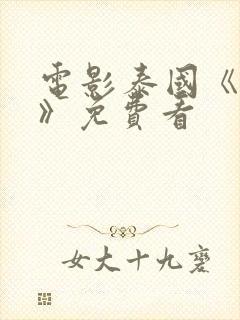 電影泰國《
》免費看
女大十九變